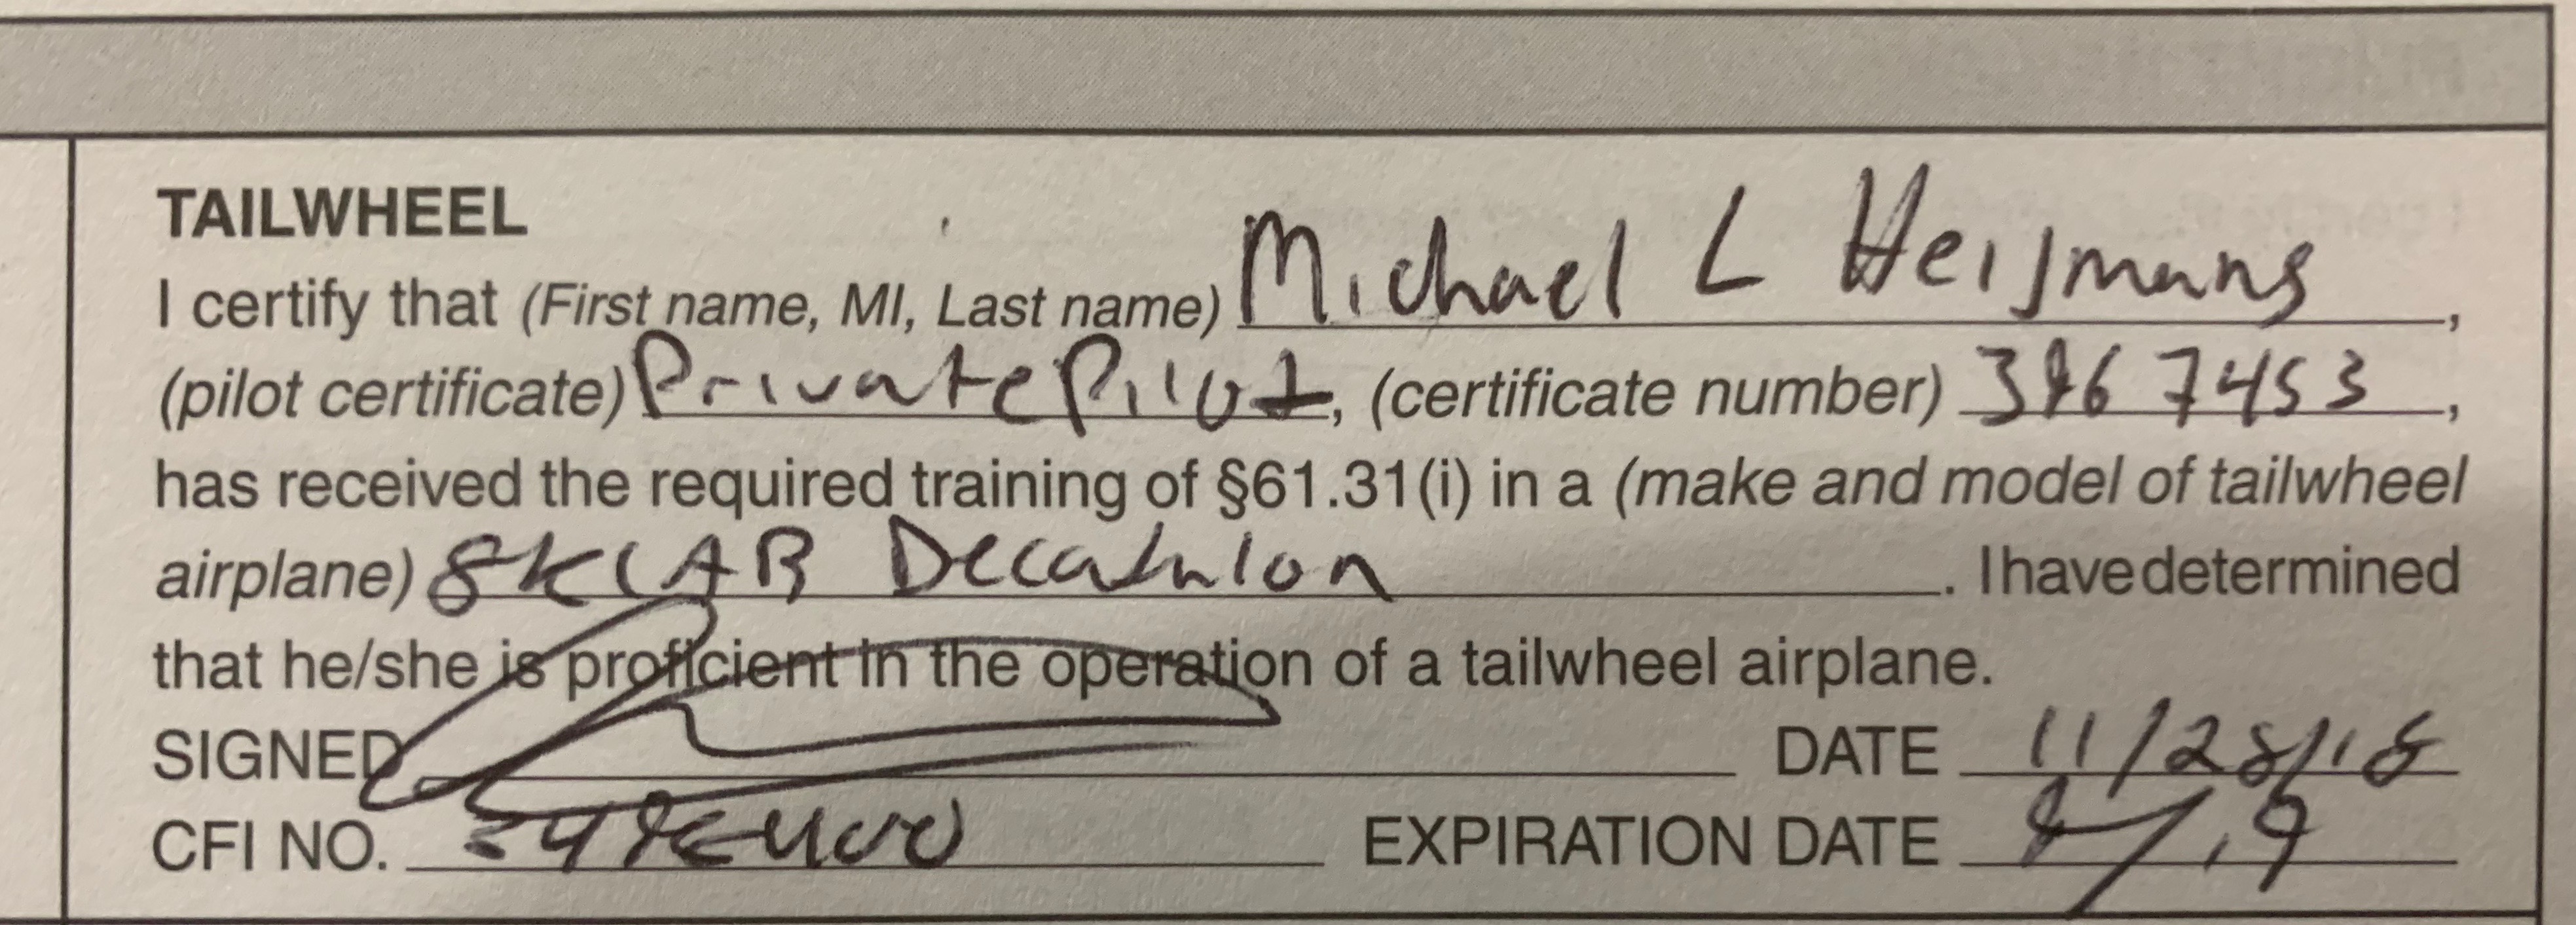 TAILWHEEL
I certify that (First name, MI, Last name) Michael L Heijmans,
(pilot certificate) Private Pilot, (certificate number) 3867453,
has received the required training of §61.31(i) in a (make and model of tailwheel
airplane) 8KCAB Decathlon. I have determined
that he/she is proficient in the operation of a tailwheel airplane.
SIGNED DATE 11/28/18
CFI NO. EXPIRATION DATE